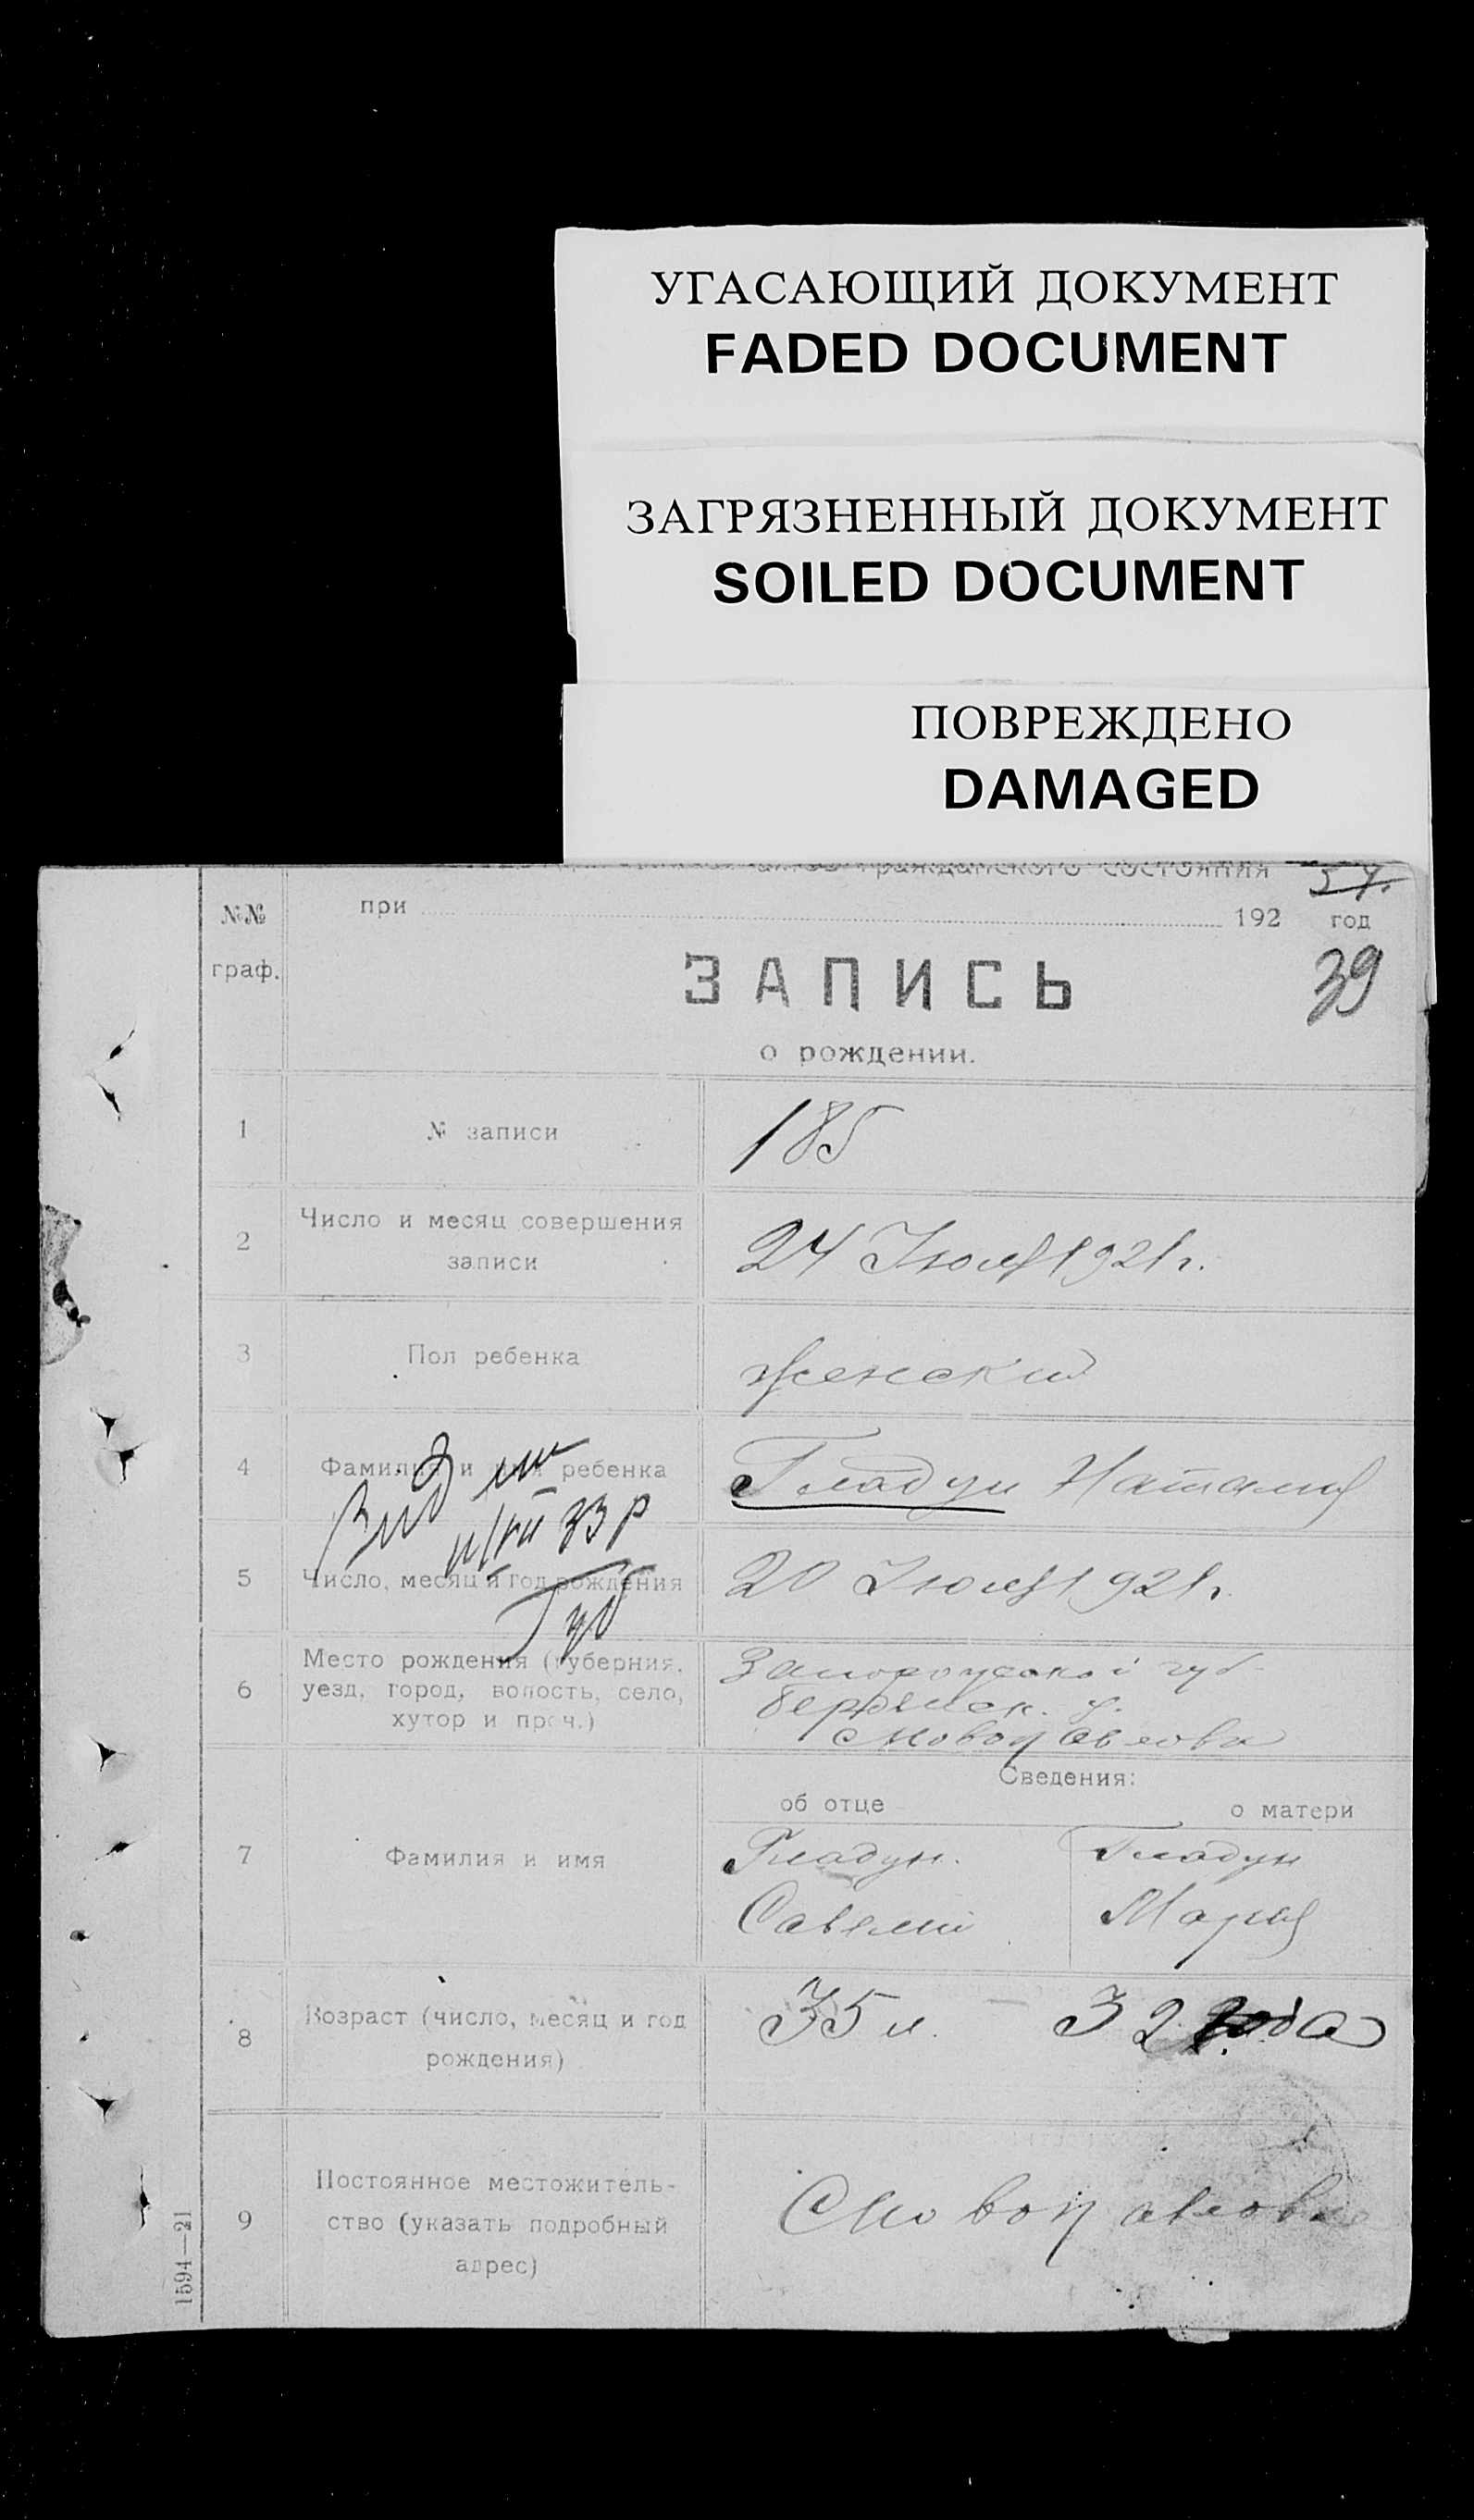 УГАСАЮЩИЙ ДОКУМЕНТ
FADED DOCUMENT
ЗАГРЯЗНЕННЫЙ ДОКУМЕНТ
SOILED DOCUMENT
ПОВРЕЖДЕНО
DAMAGED
гражданского состояния 57.
№№ граф.
при 192 год
39
ЗАПИСЬ
о рождении.
1 № записи 185
2 Число и месяц совершения записи 24 Июля 1921 г.
3 Пол ребенка женский
4 Фамилия и имя ребенка Гладун Наталия
5 Число, месяц и год рождения 20 Июля 1921 г.
6 Место рождения (губерния,
уезд, город, волость, село,
хутор и проч.)
губ.
Бердянск. у.
с Новопавловка
Сведения:
об отце о матери
7 Фамилия и имя Гладун. Гладун
Савелий Мария
8 Возраст (число, месяц и год
рождения)
35 л. 32 года
9 Постоянное местожитель-
ство (указать подробный
адрес)
С Новопавловка
1594—21